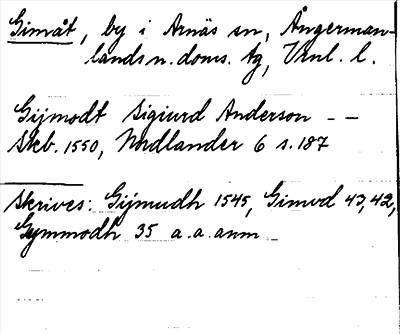 Gimåt, by i Arnäs sn, Ångerman-
lands n. doms. tg, Vnl. l.
Gijmodt Sigiurd Anderson - -
Skb. 1550, Nordlander 6 s. 187
Skrives: Gijmudh 1545, Gimod 43, 42,
Gymmodh 35 a. a. anm